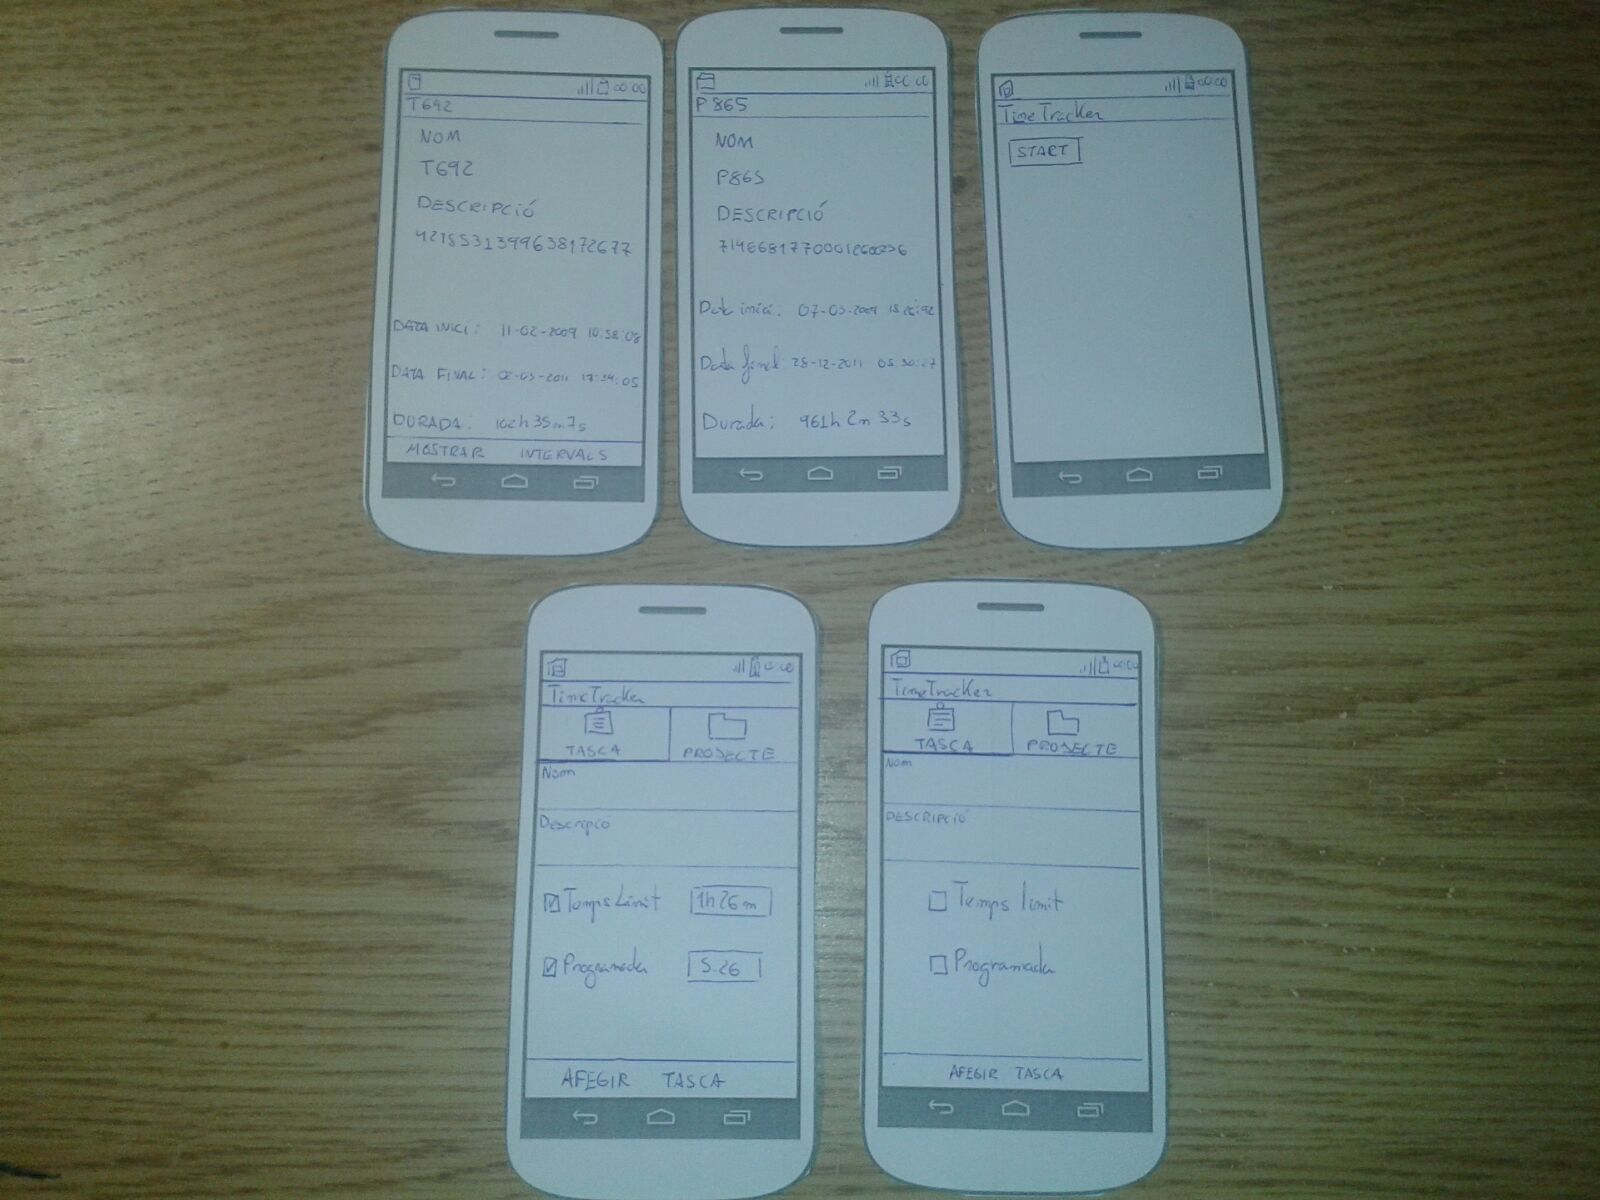 00:00
T692
NOM
T692
DESCRIPCIÓ
4218531399638172677
DATA INICI: 11-02-2009 10:38:08
DATA FINAL: 02-03-2011 17:34:05
DURADA: 102h 35m 7s
MOSTRAR INTERVALS
00:00
P865
NOM
P865
DESCRIPCIÓ
Data inici: 07-03-2009
Data final: 28-12-2011
Durada: 961h 2m 33s
00:00
TimeTracker
START
00:00
TimeTracker
TASCA PROJECTE
Nom
Descripció
Temps Límit 1h 26m
Programada 5:26
AFEGIR TASCA
00:00
TimeTracker
TASCA PROJECTE
Nom
DESCRIPCIÓ
Temps límit
Programada
AFEGIR TASCA